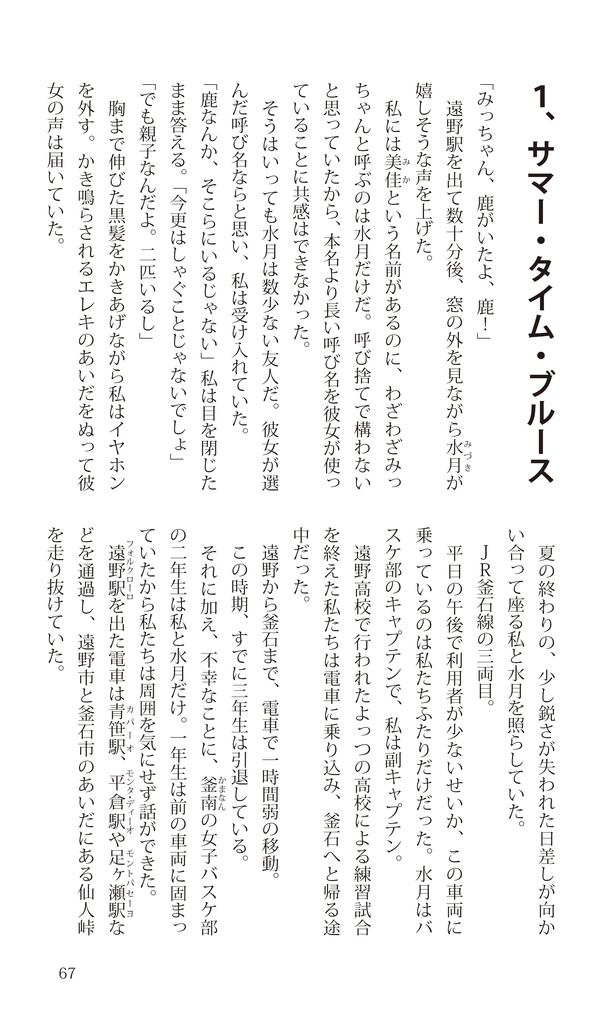 1、サマー・タイム・ブルース
「みっちゃん、鹿がいたよ、鹿！」
　遠野駅を出て数十分後、窓の外を見ながら水月が
みづき
嬉しそうな声を上げた。
　私には美佳という名前があるのに、わざわざみっ
みか
ちゃんと呼ぶのは水月だけだ。呼び捨てで構わない
と思っていたから、本名より長い呼び名を彼女が使っ
ていることに共感はできなかった。
　そうはいっても水月は数少ない友人だ。彼女が選
んだ呼び名ならと思い、私は受け入れていた。
「鹿なんか、そこらにいるじゃない」私は目を閉じた
まま答える。「今更はしゃぐことじゃないでしょ」
「でも親子なんだよ。二匹いるし」
　胸まで伸びた黒髪をかきあげながら私はイヤホン
を外す。かき鳴らされるエレキのあいだをぬって彼
女の声は届いていた。
　夏の終わりの、少し鋭さが失われた日差しが向か
い合って座る私と水月を照らしていた。
　ＪＲ釜石線の三両目。
　平日の午後で利用者が少ないせいか、この車両に
乗っているのは私たちふたりだけだった。水月はバ
スケ部のキャプテンで、私は副キャプテン。
　遠野高校で行われたよっつの高校による練習試合
を終えた私たちは電車に乗り込み、釜石へと帰る途
中だった。
　遠野から釜石まで、電車で一時間弱の移動。
　この時期、すでに三年生は引退している。
　それに加え、不幸なことに、釜南の女子バスケ部
かまなん
の二年生は私と水月だけ。一年生は前の車両に固まっ
ていたから私たちは周囲を気にせず話ができた。
　遠野駅を出た電車は青笹駅、平倉駅や足ヶ瀬駅な
フォルクローロ　カパーオ　モンタ・ディーオ　モントパセーヨ
どを通過し、遠野市と釜石市のあいだにある仙人峠
を走り抜けていた。
67